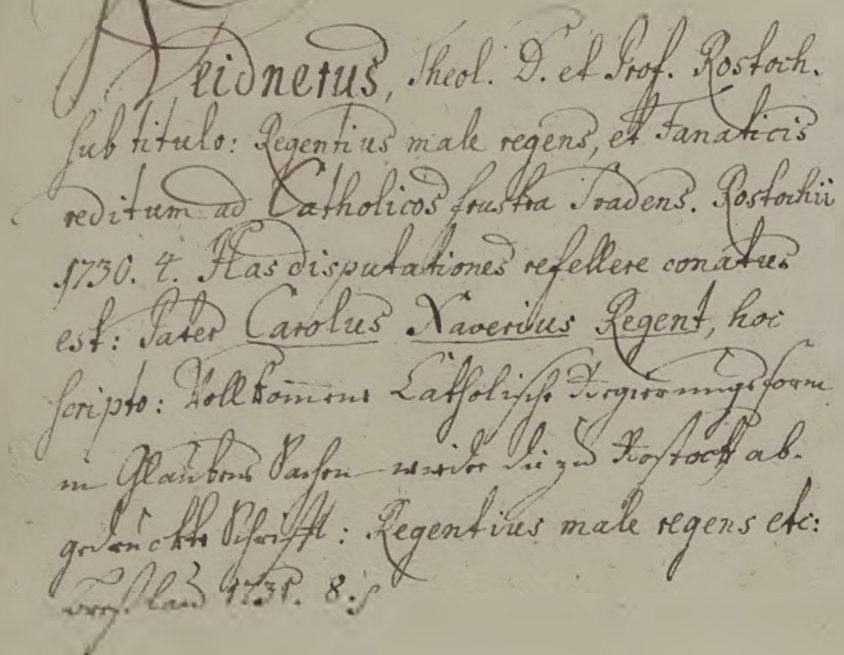 Weidnerus, Theol. D. et Prof. Rostoch.
sub titulo: Regentius male regens, et Fanaticis
reditum ad Catholicos frustra Suadens. Rostochii
1730. 4. Has disputationes refellere conatus
est: Pater Carolus Xaverius Regent, hoc
scripto: Vollkom̄ene Catholische Regierungsform
in Glaubens Sachen wieder die zu Rostock ab-
gedruckte Schrifft: Regentius male regens etc:
1731. 8.